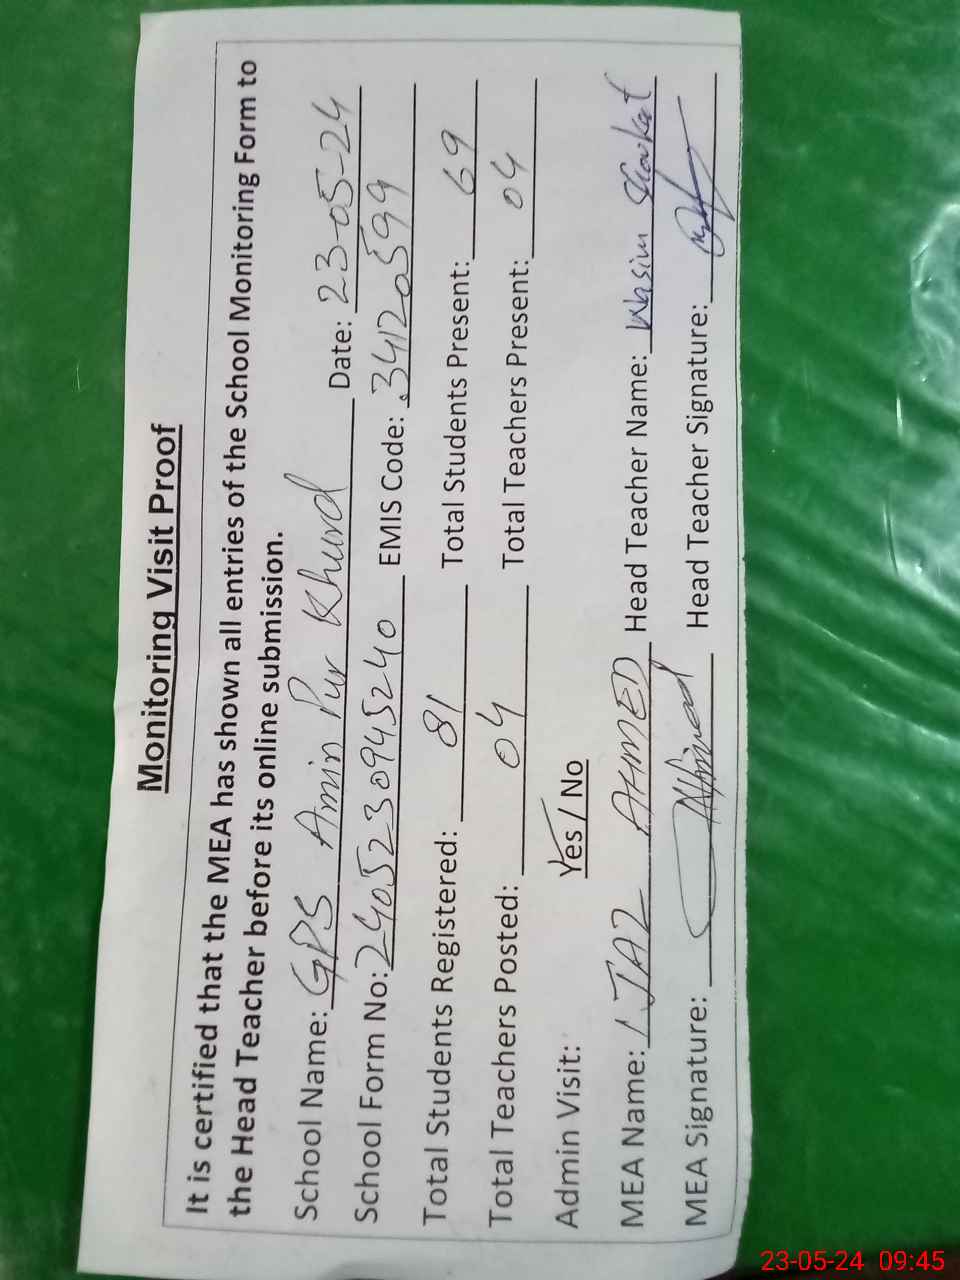 Monitoring Visit Proof
It is certified that the MEA has shown all entries of the School Monitoring Form to
the Head Teacher before its online submission.
School Name: GPS Amin Pur Khurd Date: 23-05-24
School Form No: 2405230945240 EMIS Code: 34120599
Total Students Registered: 81 Total Students Present: 69
Total Teachers Posted: 04 Total Teachers Present: 04
Admin Visit: Yes / No
MEA Name: IJAZ AHMED Head Teacher Name: Wasim Shaukat
MEA Signature: Ahmad Head Teacher Signature:
23-05-24 09:45